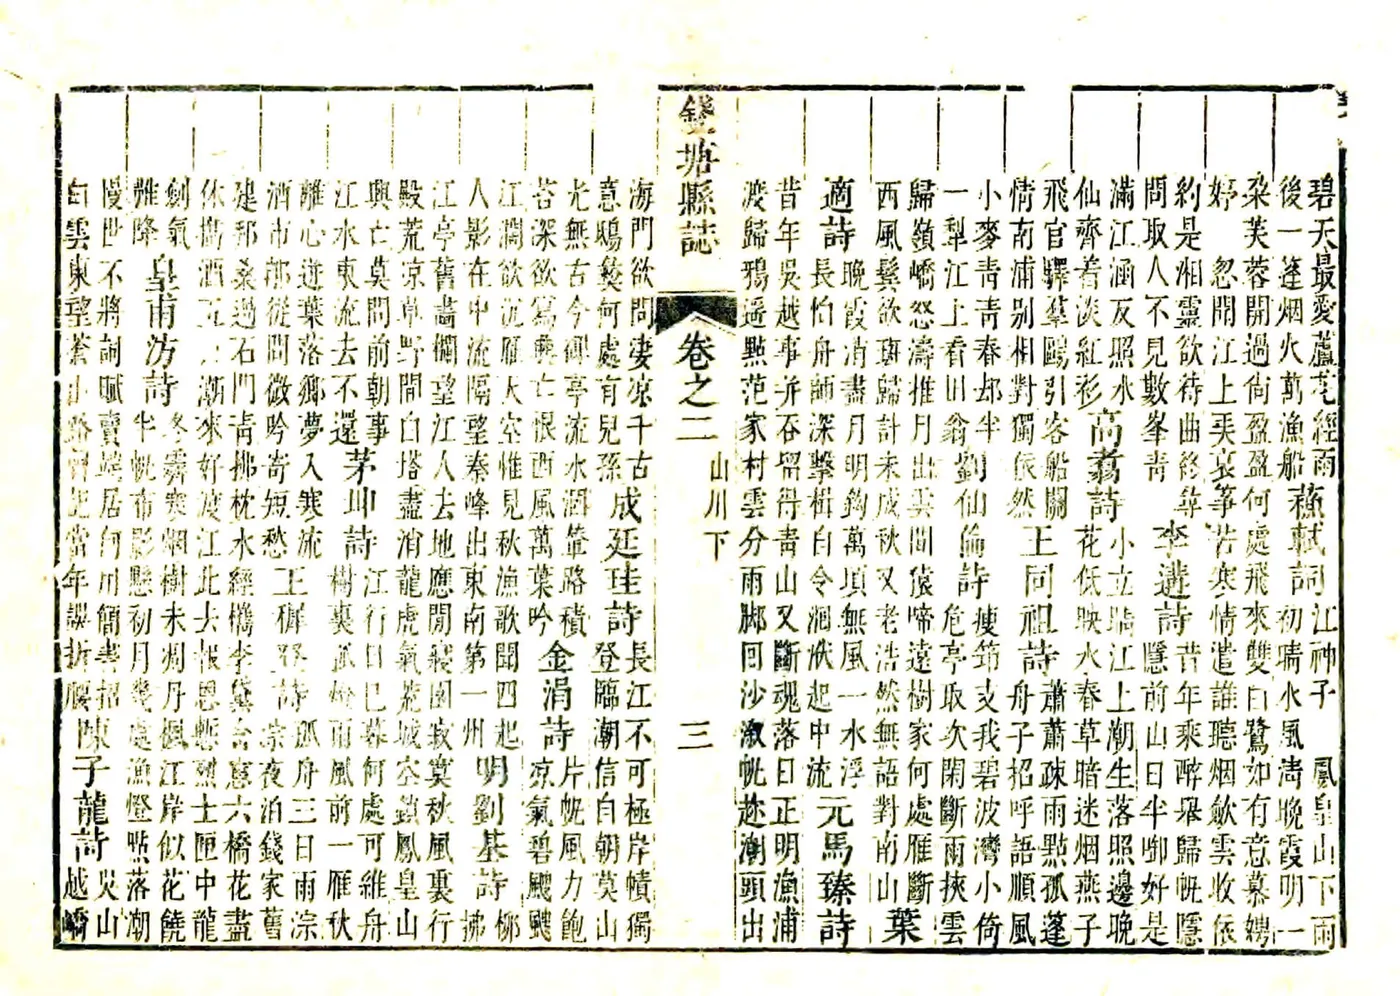 碧天最愛蘆花經雨
後一篷烟火萬漁船
蘇軾詞
江神子　鳳皇山下雨
初晴水風淸晚霞明一
朶芙蓉開過尙盈盈何處飛來雙白鷺如有意慕娉
婷　忽聞江上弄哀箏苦寒情遣誰聽烟歛雲收依
約是湘靈欲待曲終尋
問取人不見數峯靑
李遘詩
昔年乘醉舉歸帆隱
隱前山日半啣好是
滿江涵反照水
仙齊着淡紅衫
高翥詩
小立臨江上潮生落照邊晚
花低映水春草暗迷烟燕子
飛官驛羣鷗引客船關
情南浦別相對獨依然
王同祖詩
蕭蕭疎雨點孤蓬
舟子招呼語順風
小麥靑靑春却半
一犁江上看田翁
劉仙倫詩
瘦筇支我碧波灣小倚
危亭取次閑斷雨挾雲
歸嶺嶠怒濤推月出雲間猿啼遠樹家何處雁斷
西風鬢欲斑歸計未成秋又老浩然無語對南山
葉適詩
晚霞消盡月明鈎萬頃無風一水浮
長怕舟師深擊楫白令洄洑起中流
元馬臻詩
昔年吳越事并吞留得靑山又斷魂落日正明漁浦
渡歸鴉遥點范家村雲分雨脚回沙溆帆趂潮頭出
錢塘縣誌
卷之二
山川下
三
海門欲問凄凉千古
意鴟夷何處有兒孫
成廷珪詩
長江不可極岸幘獨
登臨潮信自朝莫山
光無古今碑亭流水涸輦路積
苔深欲寫興亡恨西風萬葉吟
金涓詩
片帆風力飽
凉氣碧颼颼
江濶欲沉雁天空惟見秋漁歌聞四起
人影在中流隔望秦峰出東南第一州
明劉基詩
柳
拂
江亭舊畵欄望江人去地應閒寢園寂寞秋風裏行
殿荒凉草野間白塔盡消龍虎氣荒城空鎖鳳皇山
興亡莫問前朝事
江水東流去不還
茅坤詩
江行日已暮何處可維舟
樹裏孤燈雨風前一雁秋
離心迸葉落鄉夢入寒流
酒市那從問微吟寄短愁
王穉登詩
孤舟三日雨淙
淙夜泊錢家舊
建邦桑過石門靑拂枕水經檇李黛含窻六橋花盡
休攜酒五潮來好渡江此去報恩慚烈士匣中龍
劍氣
雖降
皇甫汸詩
冬霽寒烟樹未凋丹楓江岸似花饒
半帆布影懸初月幾處漁燈點落潮
慢世不將詞賦賣端居何用簡書招
白雲東望蒼山路當年誤折腰
陳子龍詩
吳山
越嶠